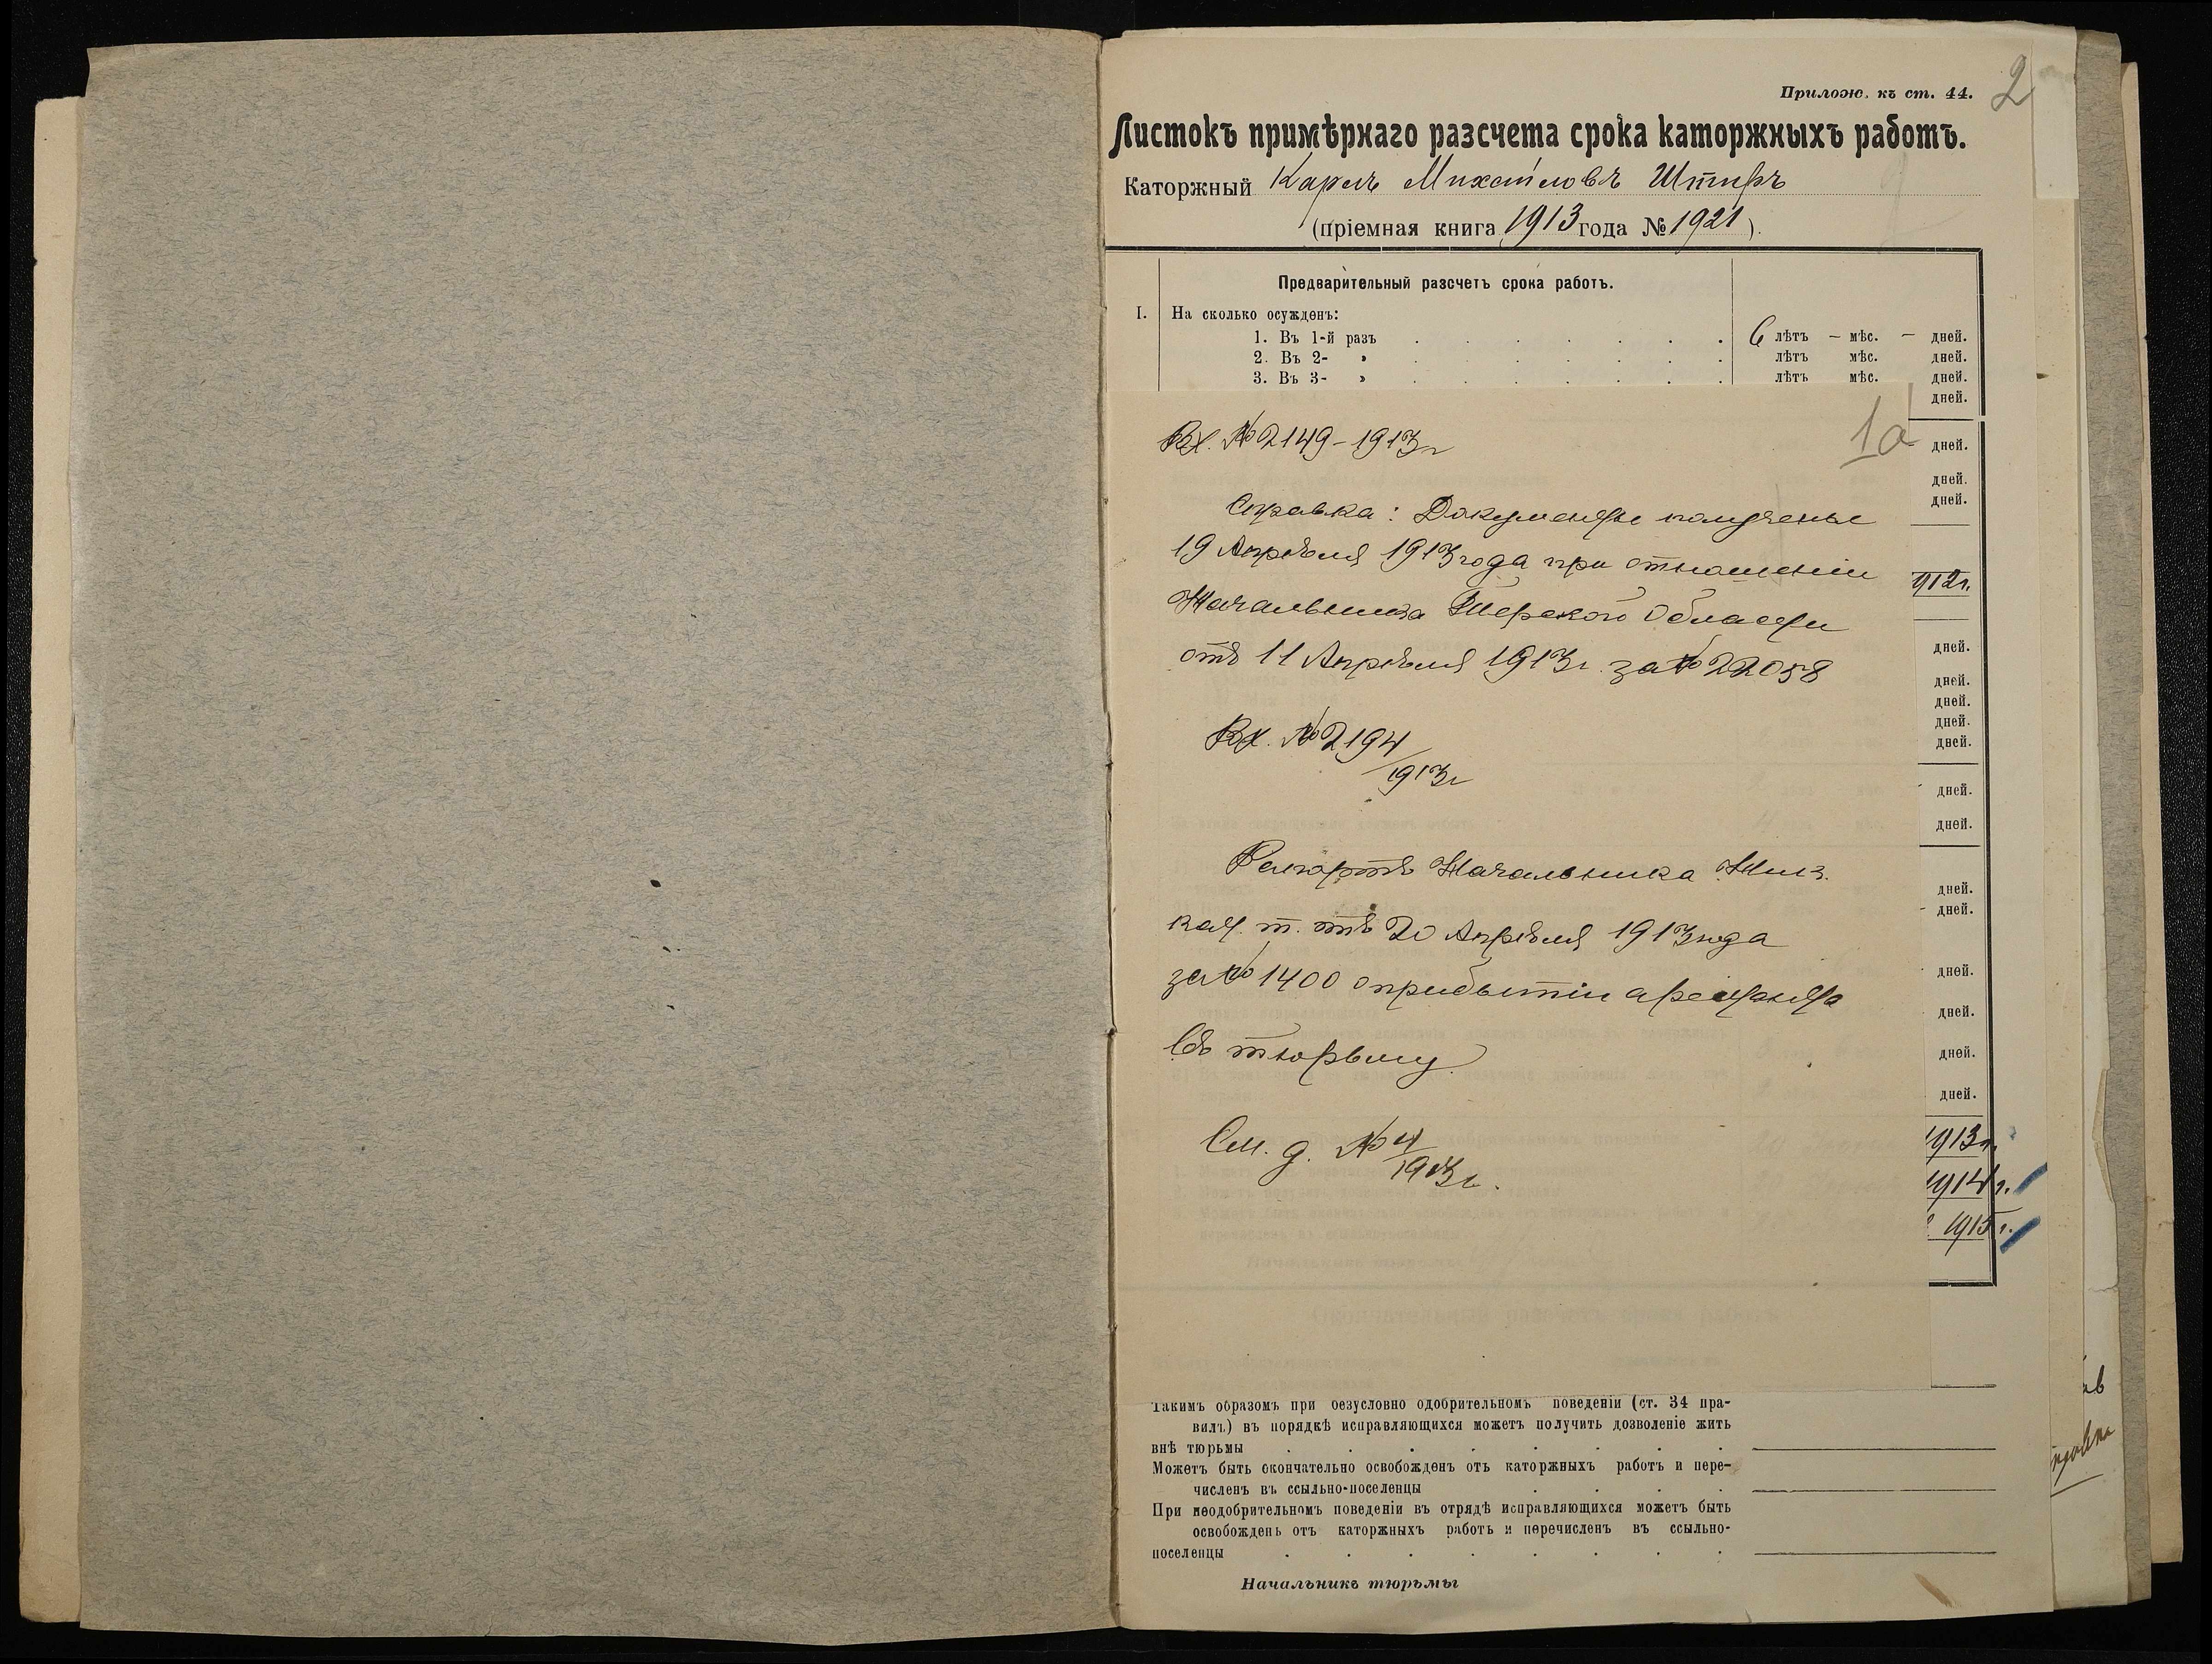 Прилож. къ ст. 44.
2
Листокъ примѣрнаго разсчета срока каторжныхъ работъ.
Каторжный Карлъ Михайловъ Штиръ
(пріемная книга 1913 года № 1921).
Предварительный разсчетъ срока работъ.
I. На сколько осужденъ:
1. Въ 1-й разъ . . . . . . . 6 лѣтъ – мѣс. – дней.
2. Въ 2- » . . . . . . . лѣтъ мѣс. дней.
3. Въ 3- » . . . . . . . лѣтъ мѣс. дней.
дней.
1а
Вх. № 2149 – 1913 г
дней.
дней.
дней.
Справка: Документы получены
19 Апрѣля 1913 года при отношеніи
912 г.
Начальника Терской Области
отъ 11 Апрѣля 1913 г. за № 22058
дней.
дней.
дней.
дней.
дней.
Вх. № 2194
1913 г
дней.
дней.
Рапортъ Начальника
дней.
кат. т. отъ 20 Апрѣля 1913 года
дней.
за № 1400 о прибытіи арестанта
дней.
дней.
въ тюрьму.
дней.
дней.
См. д. № 4
1913 г.
1913 г.
1914 г.
1915 г.
Такимъ образомъ при безусловно одобрительномъ поведеніи (ст. 34 пра-
вилъ) въ порядкѣ исправляющихся можетъ получить дозволеніе жить
внѣ тюрьмы . . . . . . . .
Можетъ быть окончательно освобожденъ отъ каторжныхъ работъ и пере-
численъ въ ссыльно-поселенцы . . . .
При неодобрительномъ поведеніи въ отрядѣ исправляющихся можетъ быть
освобожденъ отъ каторжныхъ работъ и перечисленъ въ ссыльно-
поселенцы . . . . . . . .
Начальникъ тюрьмы